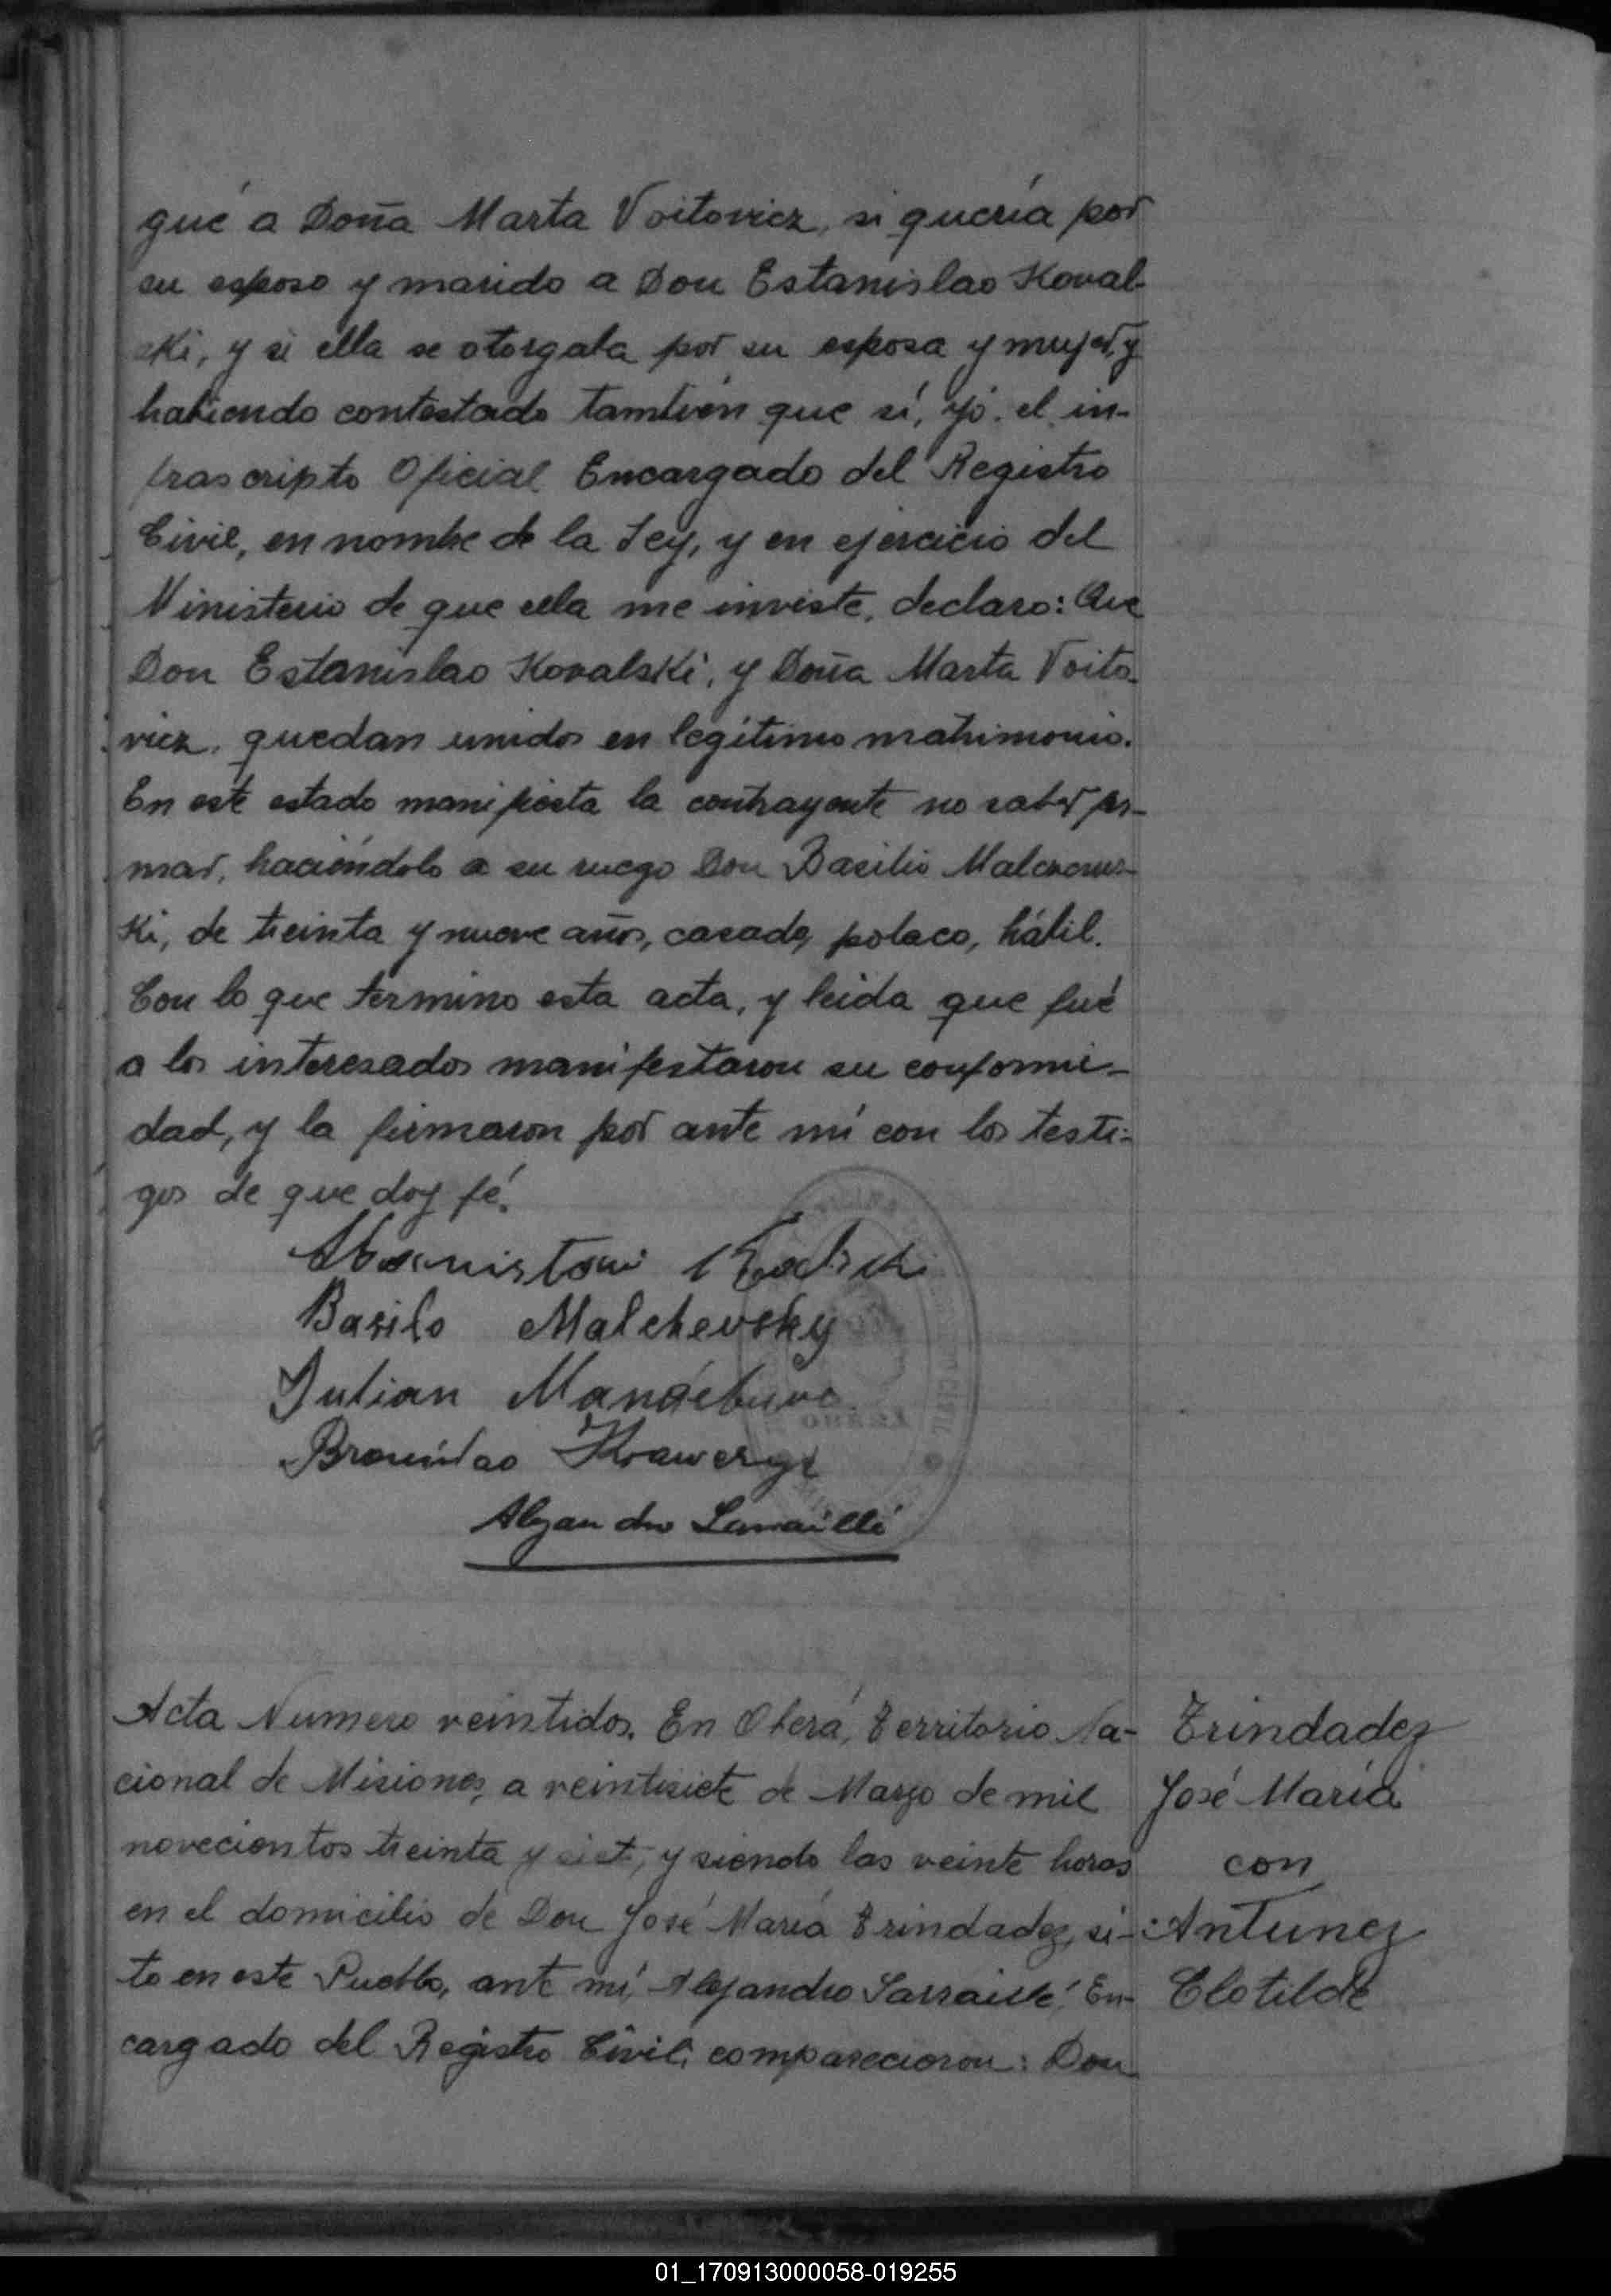 gué a Doña Marta Voitovicz, si quería por
su esposo y marido a Don Estanislao Koval-
ski, y si ella se otorgaba por su esposa y mujer, y
habiendo contestado también que sí, yó el in-
frascripto Oficial Encargado del Registro
Civil, en nombre de la Ley, y en ejercicio del
Ministerio de que ella me inviste, declaro: Que
Don Estanislao Kovalski, y Doña Marta Voito-
vicz, quedan unidos en legítimo matrimonio.
En este estado manifiesta la contrayente no saber fir-
mar, haciéndolo a su ruego Don Basilio Malczews-
ki, de treinta y nueve años, casado, polaco, hábil.
Con lo que termino esta acta, y leida que fué
a los interesados manifestaron su conformi-
dad, y la firmaron por ante mí con los testi-
gos de que doy fé.
Basilo Malchevsky
Julian
Bronislao Krawczyk
Alejandro Sarraillé
Acta Numero veintidos. En Oberá, Territorio Na-
cional de Misiones, a veintisiete de Marzo de mil
novecientos treinta y siete, y siendo las veinte horas
en el domicilio de Don José María Trindadez, si-
to en este Pueblo, ante mí, Alejandro Sarraillé, En-
cargado del Registro Civil, comparecieron: Don
Trindadez
José María
con
Antunez
Clotilde
01_170913000058-019255